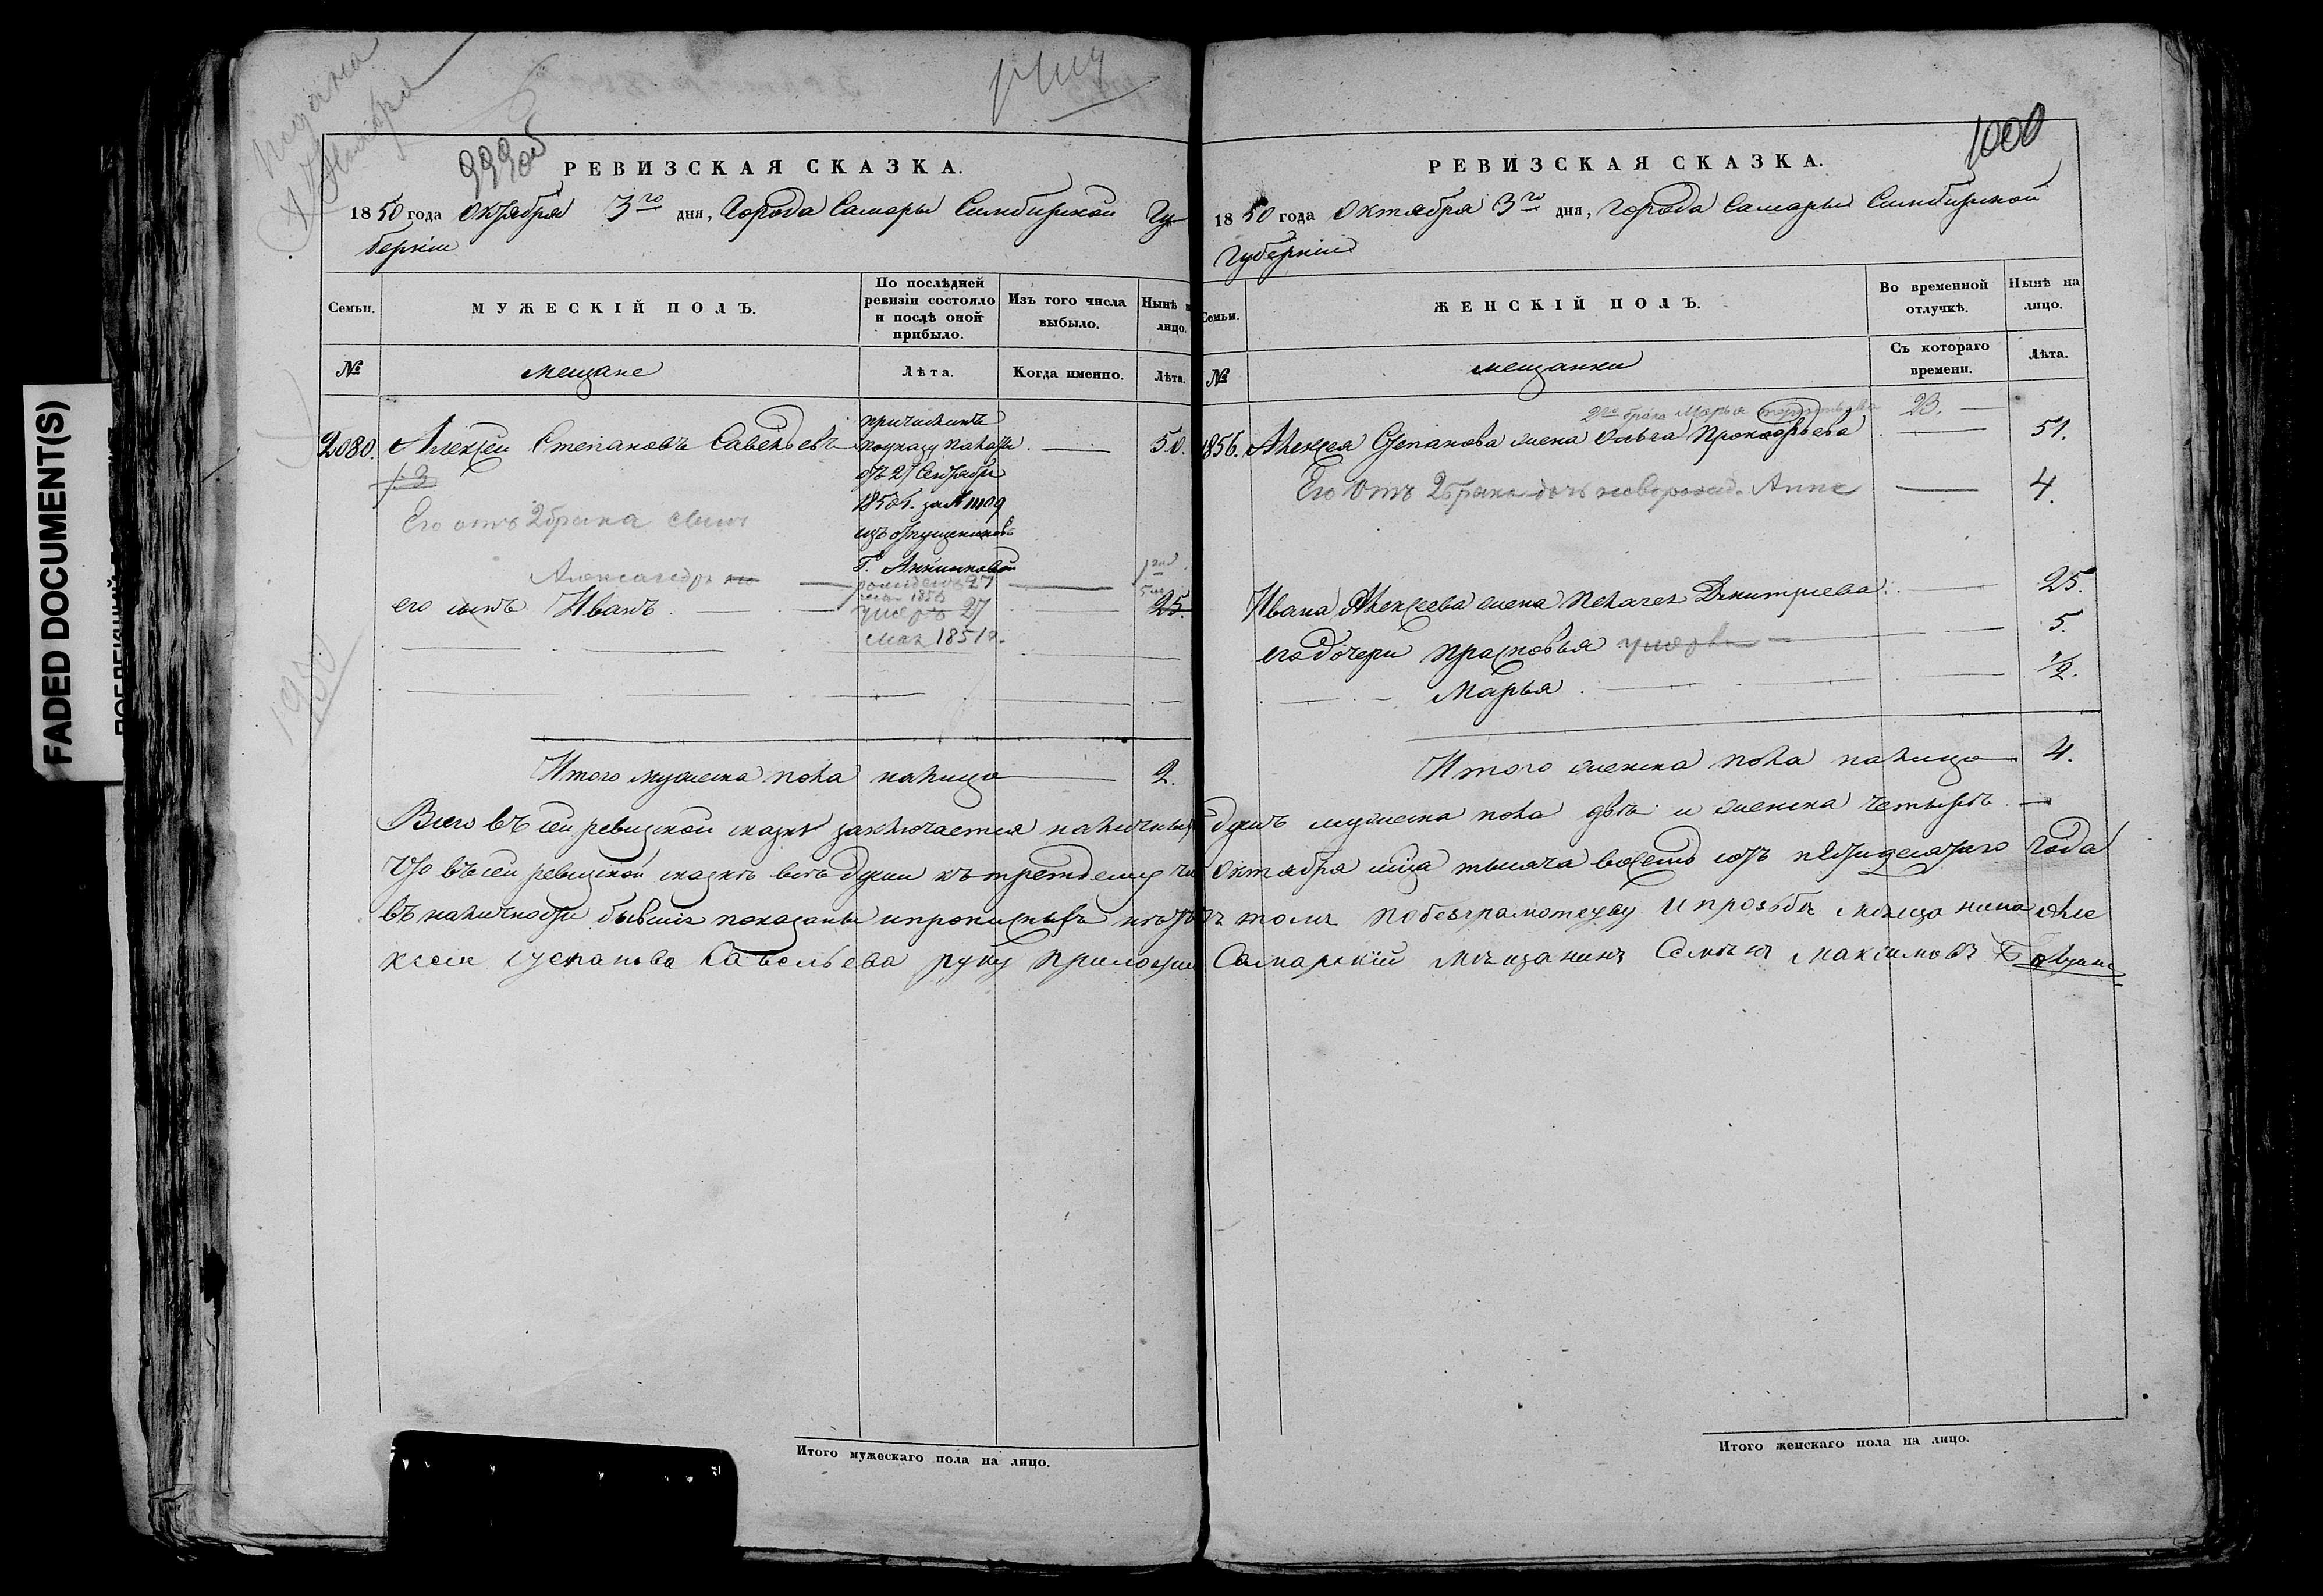 FADED DOCUMENT(S)
999об
РЕВИЗСКАЯ СКАЗКА.
1850 года Октября 3го дня, Города Самары Симбирской Гу
берніи
Семьи.
МУЖЕСКІЙ ПОЛЪ.
По послѣдней
ревизіи состояло
и послѣ оной
прибыло.
Изъ того числа
выбыло.
Нынѣ н
лицо.
№
мещане
Лѣта.
Когда именно.
Лѣта.
2080. Алексѣй Степановъ Савельевъ 50.
причислинъ
поуказу палаты
отъ 27 Сентября
1850г. за №
изъ отпущенниковъ
Г. Анненковой
Его отъ 2 брака сынъ
Александръ
рожденъ 27
мая 1856
1 год.
5 м
его сынъ Иванъ 25.
умеръ 27
мая 1851 г.
Итого мужеска пола налицо 2.
1000
РЕВИЗСКАЯ СКАЗКА.
1850 года Октября 3го дня, города Самары Симбирской
Губерніи
Семьи.
ЖЕНСКІЙ ПОЛЪ.
Во временной
отлучкѣ.
Нынѣ на
лицо.
№
мещанки
Съ котораго
времени.
Лѣта.
2го брака Марья 23.
1856. Алексея Степанова жена Ольга Прокофьева 51.
Его отъ 2 брака дочь новорожд. Анна 4.
Ивана Алексеева жена Пелагея Дмитриева 25.
его дочери Прасковья умерла 5.
Марья 1/2.
Итого женска пола налицо 4.
Всего въ сей ревизской сказке заключается наличныхъ душъ мужеска пола двѣ и женска четыре.
Что въ сей ревизской сказкѣ всѣ души къ третьему чи Октября мца тысяча восемь сотъ пятидесятаго года
въ наличности бывшие показаны и прописныхъ нѣтъ въ томъ побезграмотству и прозьбѣ мещанина Але
ксея Степанова Савельева руку приложилъ Самарскій мещанинъ Семенъ Максимовъ
Итого мужескаго пола на лицо.
Итого женскаго пола на лицо.